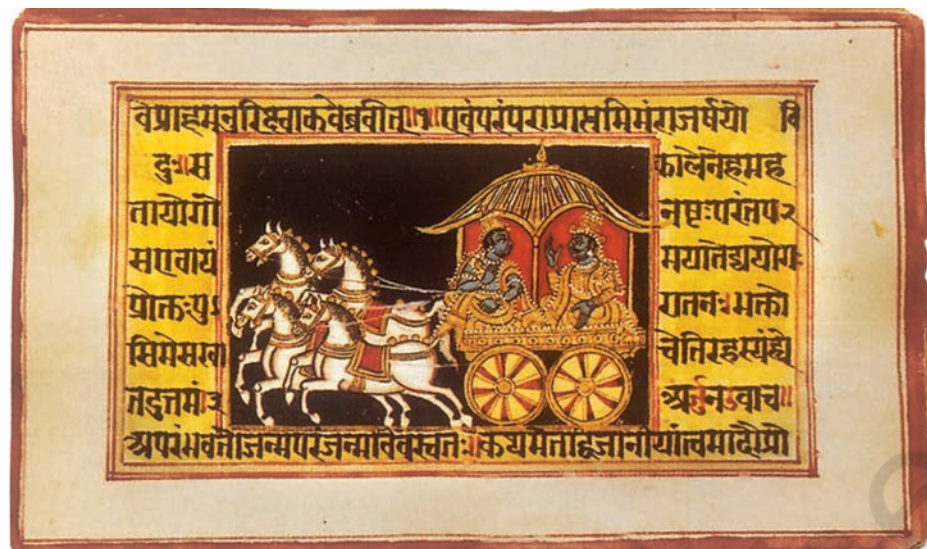 वेप्राहमनुरिक्ष्वाकवेब्रवीत्॥१ एवंपरंपराप्राप्तमिमंराजर्षयो वि
दुः॥स कालेनेहमह
तायोगो नष्टःपरंतप२
सएवायं मयातेद्ययोगः
प्रोक्तःपु रातनः॥भक्तो
सिमेसखा चेतिरहस्यंह्ये
तदुत्तमं॥३ अर्जुनउवाच॥
अपरंभवतोजन्मपरंजन्मविवस्वतः॥कथमेतद्विजानीयांत्वमादौप्रो